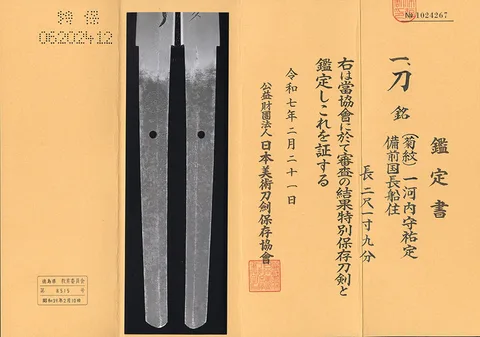 №1024267
鑑定書
一、刀 銘 (菊紋)一河内守祐定
備前国長船住
長二尺一寸九分
右は當協會に於て審査の結果特別保存刀剣と
鑑定しこれを証する
令和七年二月二十一日
公益財團法人 日本美術刀剣保存協會
特保
06202412
徳島県 教育委員会
第 8515 号